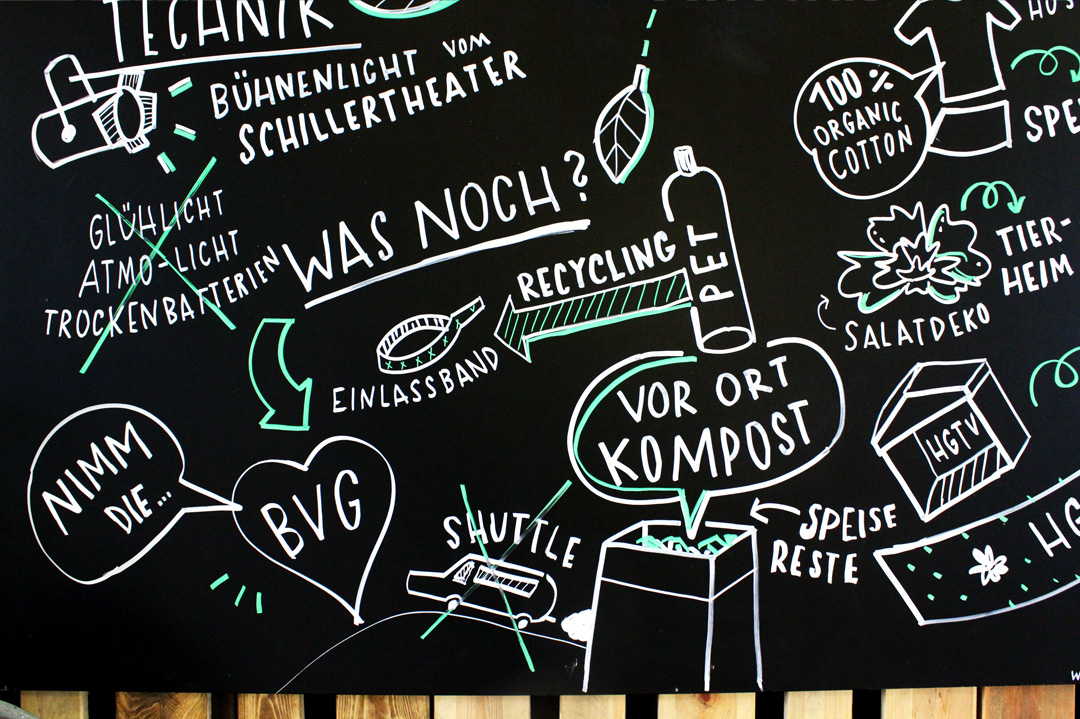 TECHNIK
BÜHNENLICHT VOM
SCHILLERTHEATER
GLÜHLICHT
ATMO-LICHT
TROCKENBATTERIEN
WAS NOCH?
RECYCLING
PET
EINLASSBAND
100%
ORGANIC
COTTON
TIER-
HEIM
SALATDEKO
VOR ORT
KOMPOST
HGTV
NIMM
DIE...
BVG
SHUTTLE
SPEISE
RESTE